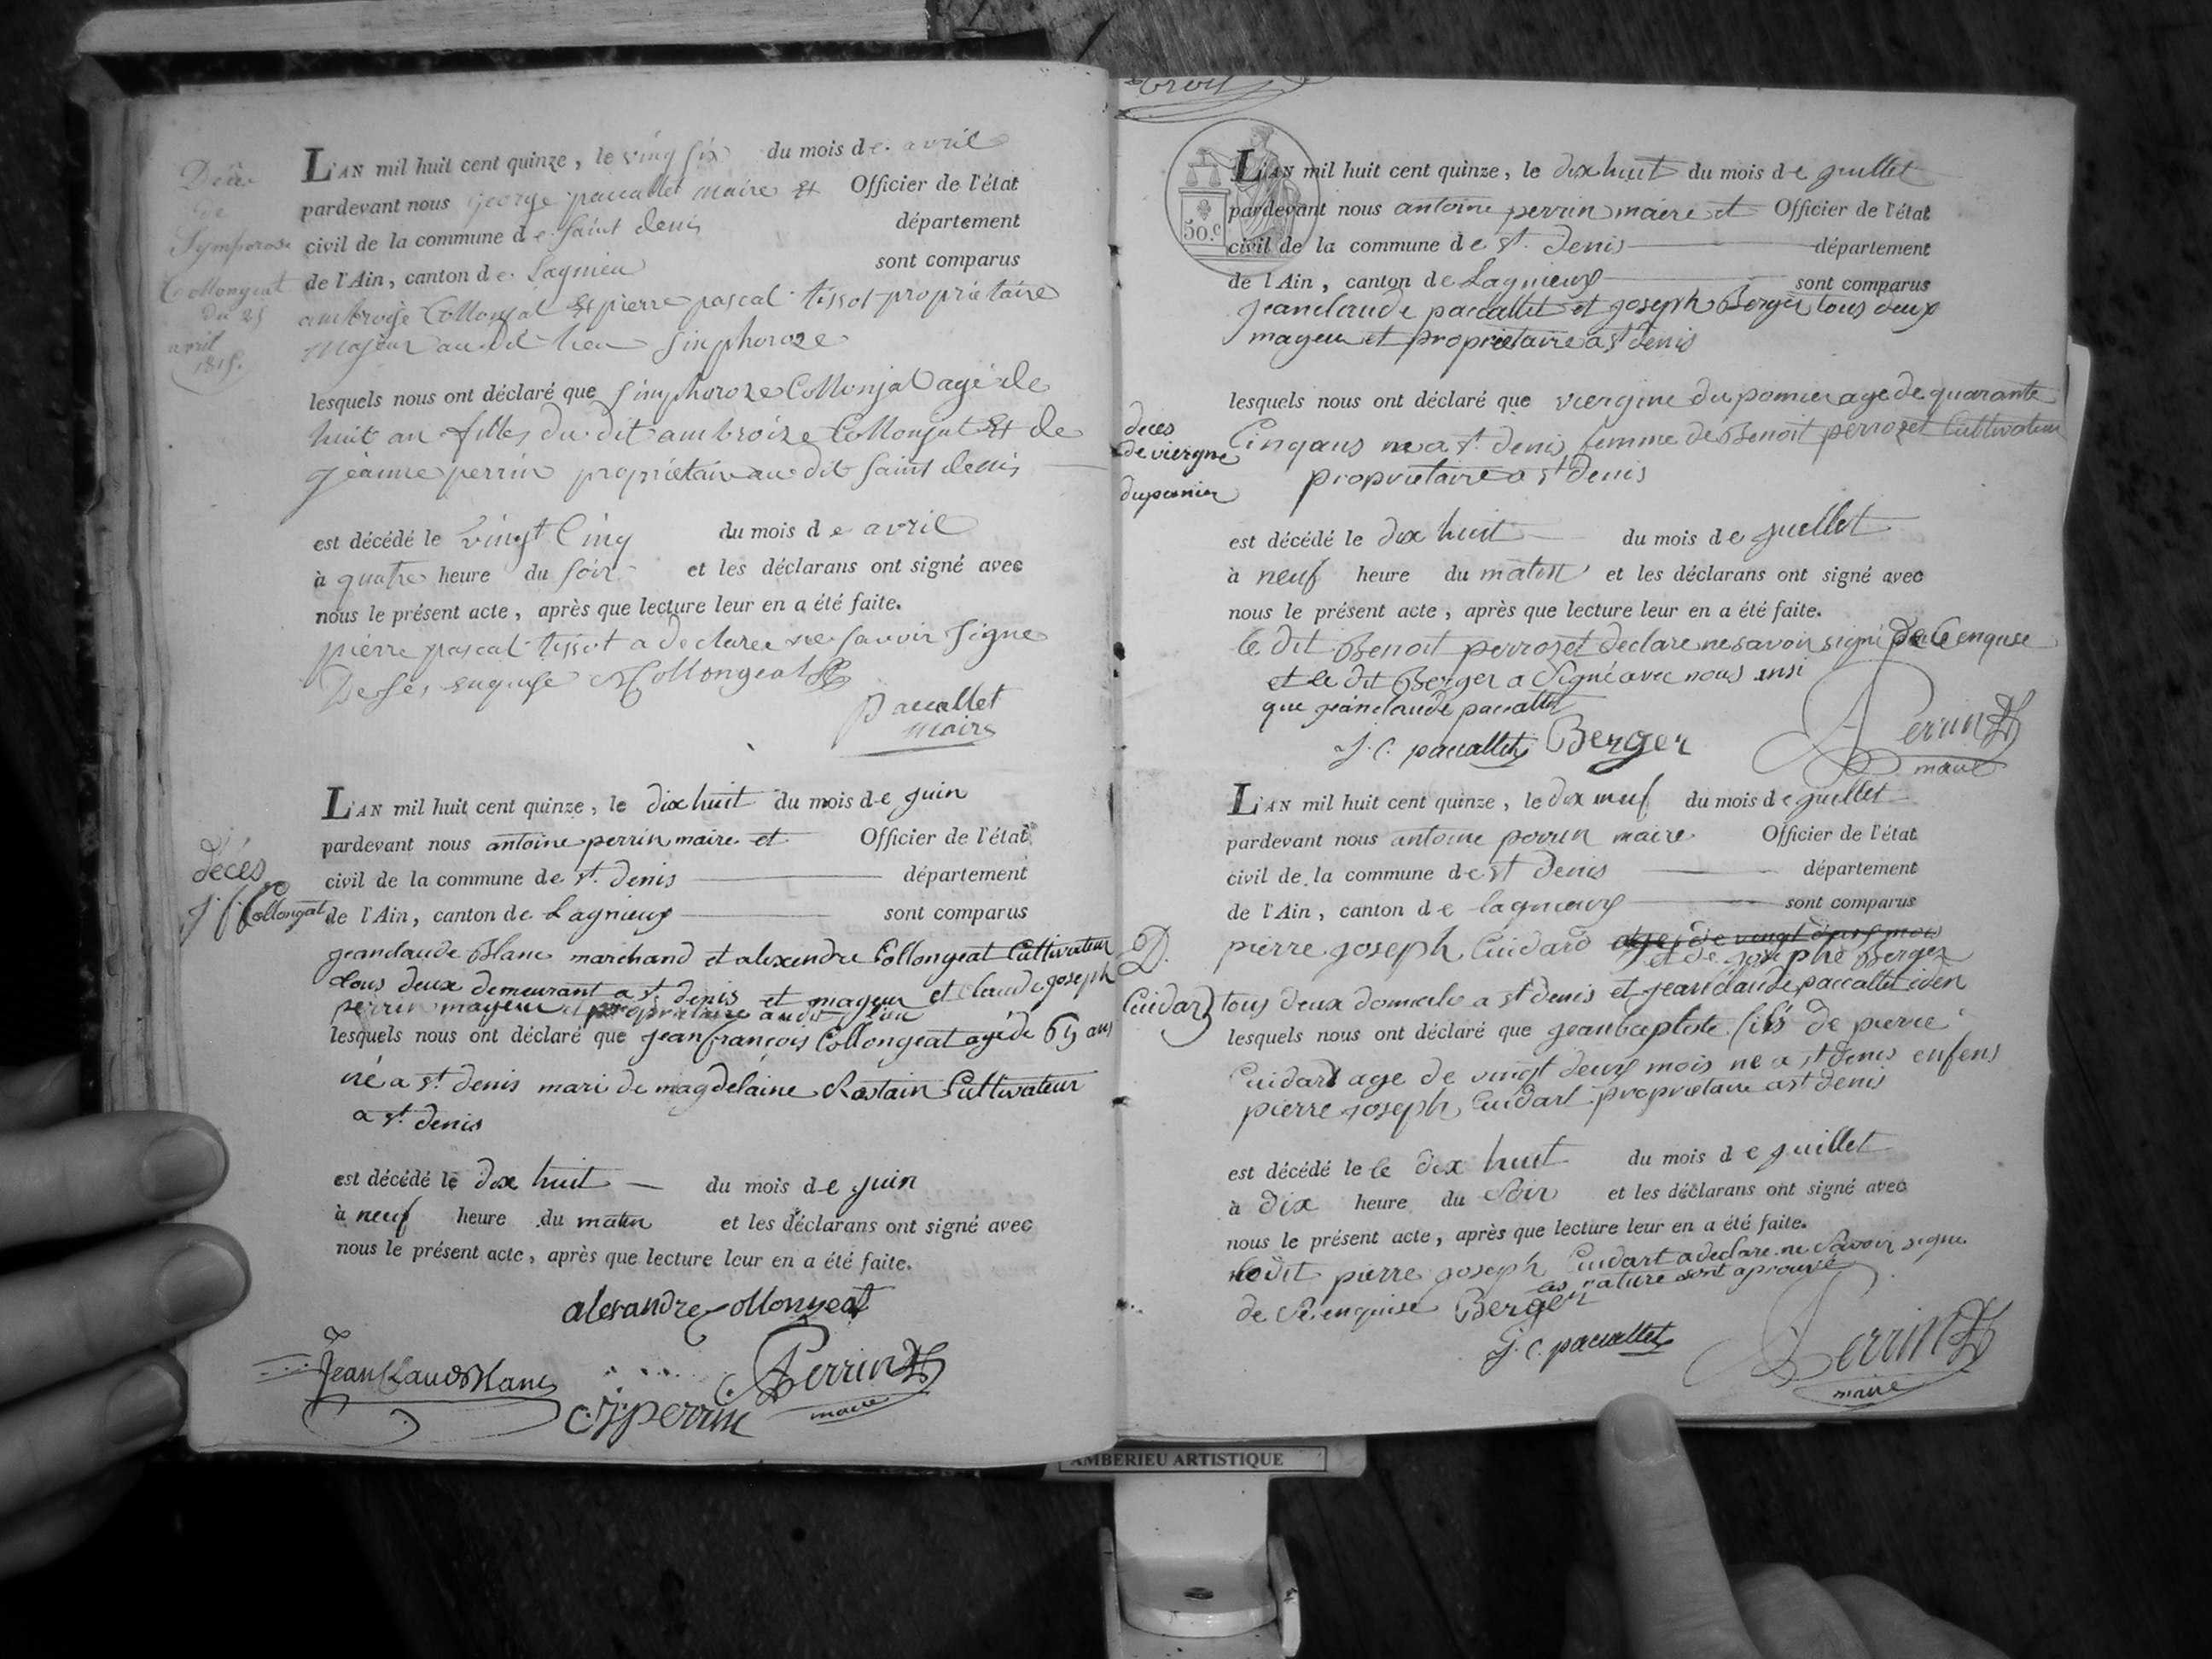 Décès
de
Symporose
Collongeat
du 25
avril
1815.
L'AN mil huit cent quinze, le ving six du mois de avril
pardevant nous george paccallet maire et Officier de l'état
civil de la commune de saint denis département
de l'Ain, canton de Lagnieu sont comparus
ambroise Collonjat Et pierre pascal tissot proprietaire
majeur au dit lieu Sinphoroze
lesquels nous ont déclaré que Simphoroze Collonjat agé de
huit an filles du dit ambroize Collonjat Et de
jeanne perrin propriétaire au dit saint denis
est décédé le vingt Cinq du mois de avril
à quatre heure du soir et les déclarans ont signé avec
nous le présent acte, après que lecture leur en a été faite.
pierre pascal tissot a declaree ne savoir signe
De ses enquise Collongeat
paccallet
maire
décés
J. f. Collongeat
L'AN mil huit cent quinze, le dix huit du mois de juin
pardevant nous antoine perrin maire et Officier de l'état
civil de la commune de st. denis département
de l'Ain, canton de Lagnieux sont comparus
jeanclaude Blanc marchand et alexendre Collongeat Cultivateur
tous deux demeurant a st. denis et mayeur et claude joseph
perrin mayeur et propriétaire audit lieu
lesquels nous ont déclaré que jeanfrançois Collongeat agé de 65 ans
né a st. denis mari de magdelaine Rostain Cultivateur
a st. denis
est décédé le dix huit du mois de juin
à neuf heure du matin et les déclarans ont signé avec
nous le présent acte, après que lecture leur en a été faite.
alexandre Collongeat
Jean Claude Blanc
C J perrin
A Perrin
maire
50.c
L'AN mil huit cent quinze, le dix huit du mois de juillet
pardevant nous antoine perrin maire et Officier de l'état
civil de la commune de st. denis département
de l'Ain, canton de Lagnieux sont comparus
jeanclaude paccallet et joseph Berger tous deux
mayeur et proprietaire a st denis
decés
de viergne
dupomier
lesquels nous ont déclaré que viergine du pomier age de quarante
Cinq ans ne a st. denis femme de Benoit perrozet Cultivateur
proprietaire a st denis
est décédé le dix huit du mois de juillet
à neuf heure du matin et les déclarans ont signé avec
nous le présent acte, après que lecture leur en a été faite.
le dit Benoit perrozet declare ne savoir signé de ce enquise
et le dit Berger a signé avec nous ensi
que jeanclaude paccallet
J. C. paccallet Berger
A Perrin
maire
L'AN mil huit cent quinze, le dix neuf du mois de juillet
pardevant nous antoine perrin maire Officier de l'état
civil de la commune de st denis département
de l'Ain, canton de lagnieux sont comparus
D.
Cuidard
pierre joseph Cuidard age de vingt deux mois
et de josephe Berger
tous deux domicile a st denis et jeanclaude paccallet iden
lesquels nous ont déclaré que jeanbaptiste fils de pierre
Cuidart age de vingt deux mois ne a st denis enfens
pierre joseph Cuidart proprietaire a st denis
est décédé le le dix huit du mois de juillet
à dix heure du soir et les déclarans ont signé avec
nous le présent acte, après que lecture leur en a été faite.
ledit pierre joseph Cuidart a declare ne savoir signe
les rature sont aprouvé
de ce enquise Berger
J. C. paccallet
A Perrin
maire
AMBERIEU ARTISTIQUE